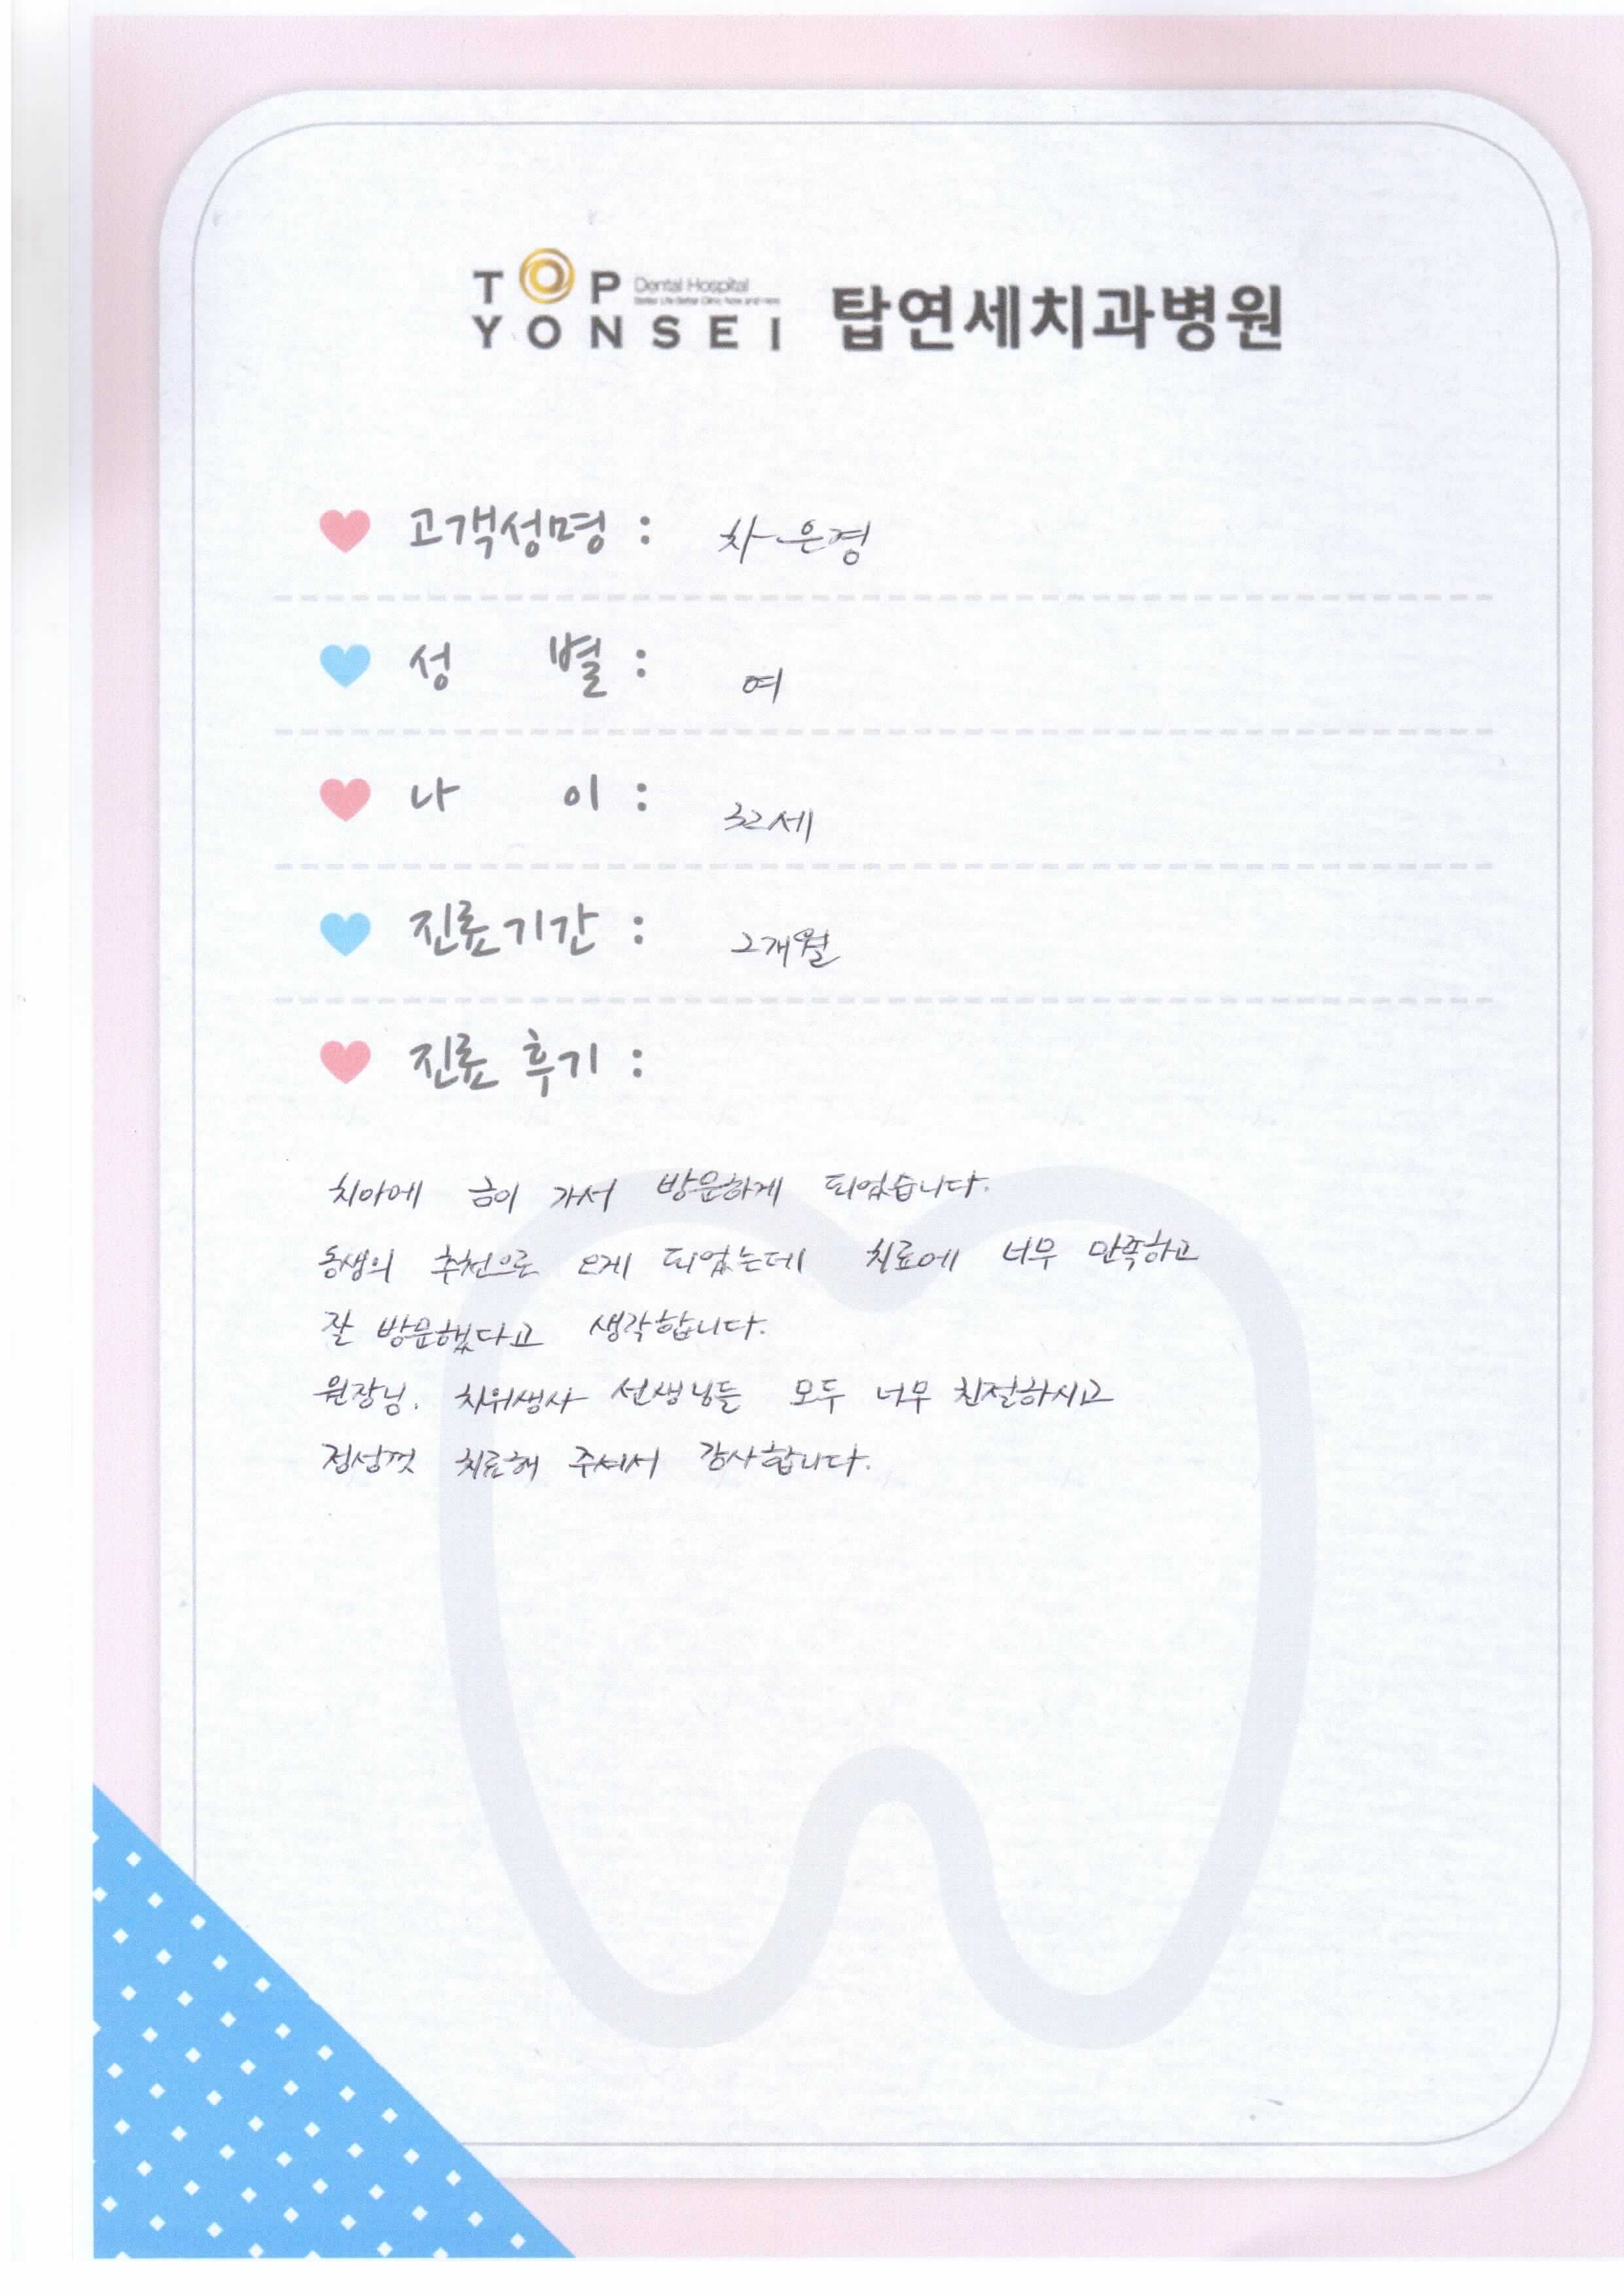 TOP Dental Hospital
YONSEI 탑연세치과병원
고객성명 : 차은경
성 별 : 여
나 이 : 32세
진료기간 : 2개월
진료 후기 :
치아에 금이 가서 방문하게 되었습니다.
동생의 추천으로 오게 되었는데 치료에 너무 만족하고
잘 방문했다고 생각합니다.
원장님, 치위생사 선생님들 모두 너무 친절하시고
정성껏 치료해 주셔서 감사합니다.